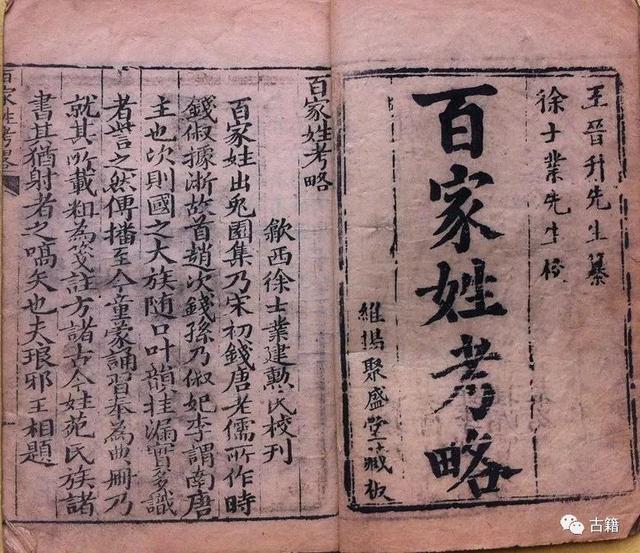 王晉升先生纂
徐士業先生校
百家姓考略
維揚聚盛堂藏板
百家姓考略
歙西徐士業建勲氏校刊
百家姓出兎園集乃宋初錢唐老儒所作時
錢俶據淛故首趙次錢孫乃俶妃李謂南唐
主也次則國之大族随口叶韻挂漏實多識
者訾之然傳播至今童蒙誦習奉為典冊乃
就其所載粗為箋註方諸古今姓苑氏族諸
書其猶射者之嚆矢也夫琅邪王相題
百家姓考畧
古籍